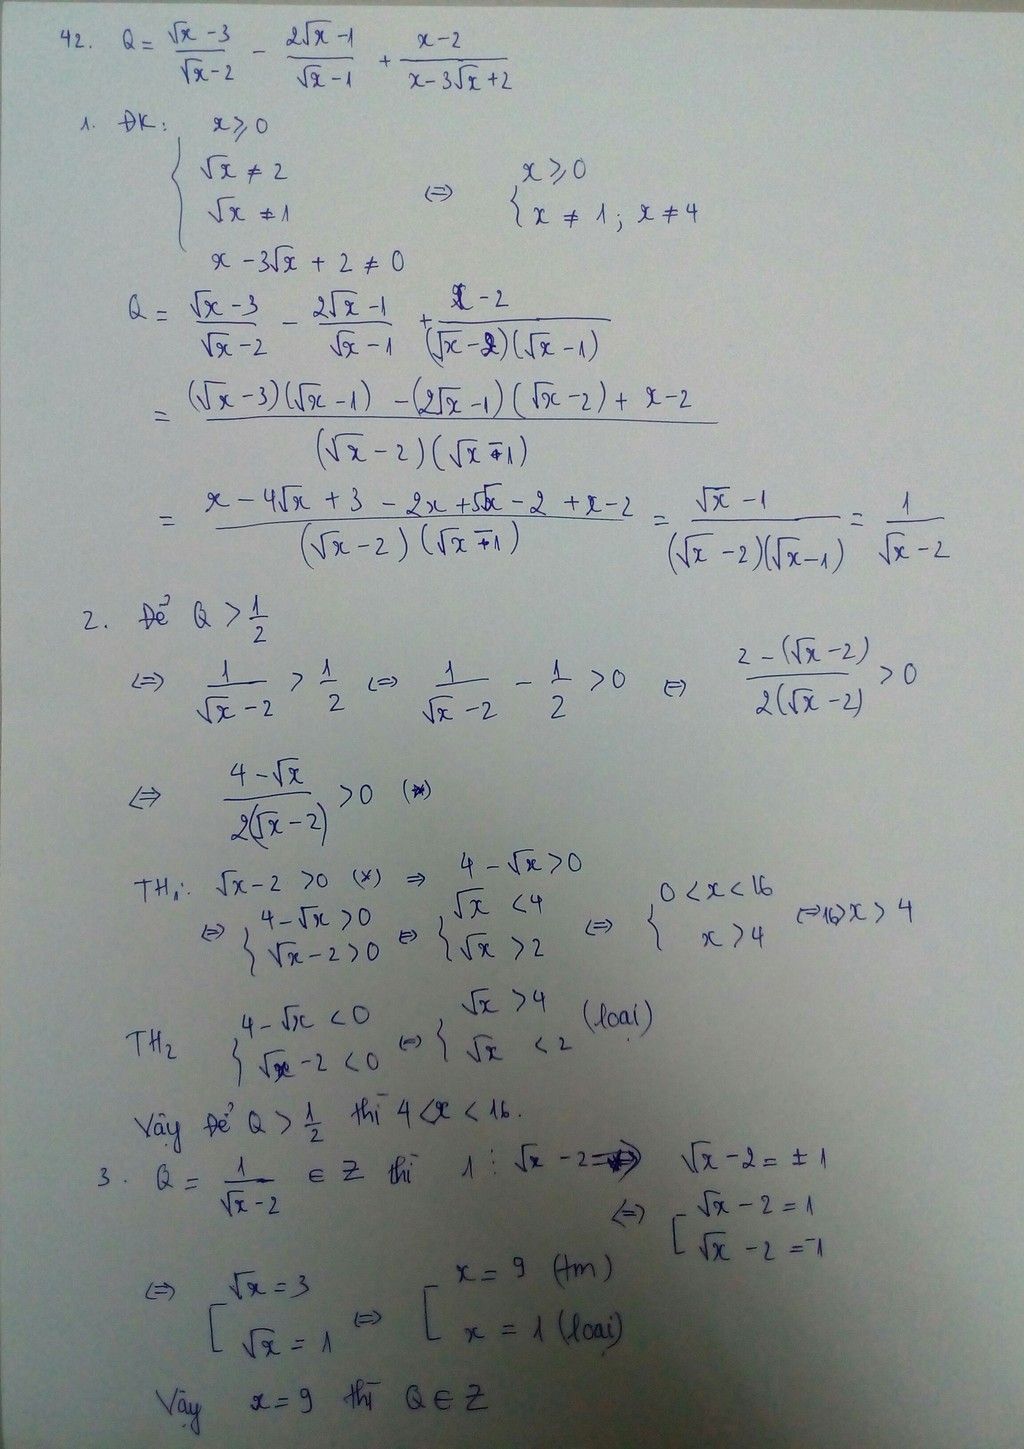 42. Q = (√x - 3)/(√x - 2) - (2√x - 1)/(√x - 1) + (x - 2)/(x - 3√x + 2)
1. ĐK: { x ≥ 0; √x ≠ 2; √x ≠ 1; x - 3√x + 2 ≠ 0 ⇔ { x ≥ 0; x ≠ 1; x ≠ 4
Q = (√x - 3)/(√x - 2) - (2√x - 1)/(√x - 1) + (x - 2)/((√x - 2)(√x - 1))
= ((√x - 3)(√x - 1) - (2√x - 1)(√x - 2) + x - 2)/((√x - 2)(√x - 1))
= (x - 4√x + 3 - 2x + 5√x - 2 + x - 2)/((√x - 2)(√x - 1)) = (√x - 1)/((√x - 2)(√x - 1)) = 1/(√x - 2)
2. Để Q > 1/2
⇔ 1/(√x - 2) > 1/2 ⇔ 1/(√x - 2) - 1/2 > 0 ⇔ (2 - (√x - 2))/(2(√x - 2)) > 0
⇔ (4 - √x)/(2(√x - 2)) > 0 (*)
TH1: √x - 2 > 0 (*) ⇒ 4 - √x > 0
⇔ { 4 - √x > 0; √x - 2 > 0 ⇔ { √x < 4; √x > 2 ⇔ { 0 < x < 16; x > 4 ⇔ 16 > x > 4
TH2 { 4 - √x < 0; √x - 2 < 0 ⇔ { √x > 4; √x < 2 (loại)
Vậy Để Q > 1/2 thì 4 < x < 16.
3. Q = 1/(√x - 2) ∈ Z thì 1 ⋮ √x - 2 ⇔ √x - 2 = ± 1
⇔ [ √x - 2 = 1; √x - 2 = -1
⇔ [ √x = 3; √x = 1 ⇔ [ x = 9 (tm); x = 1 (loại)
Vậy x = 9 thì Q ∈ Z